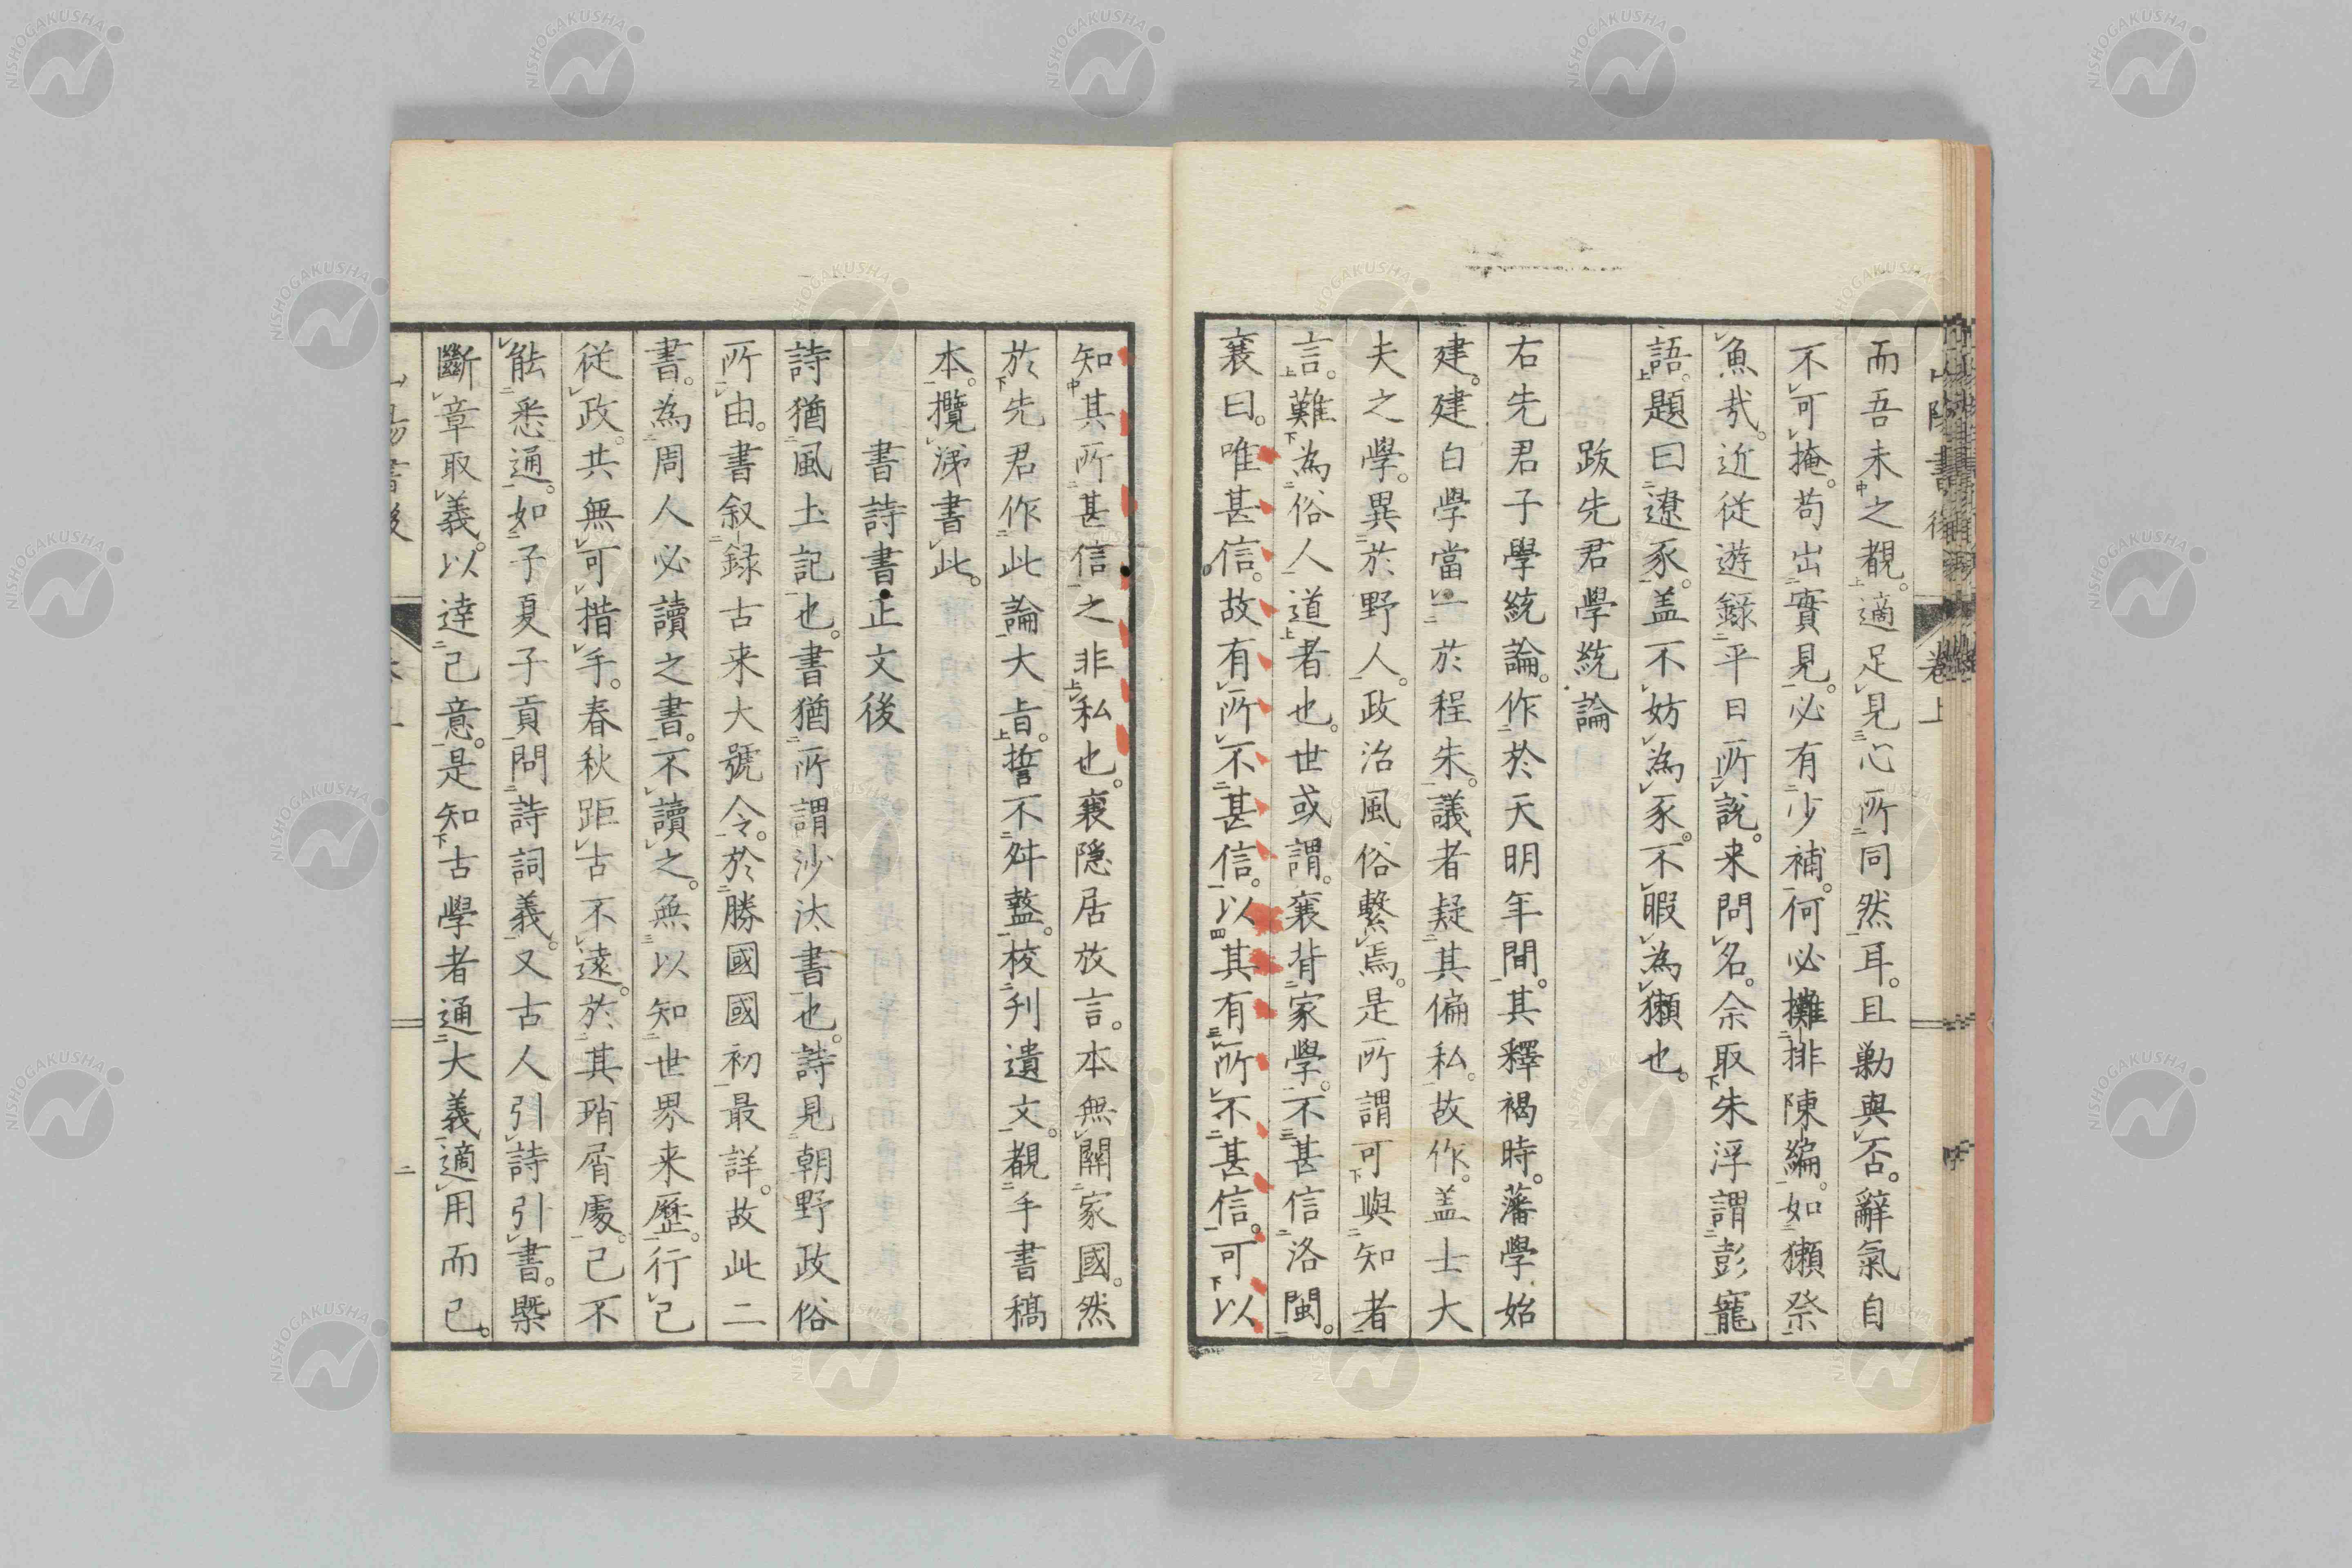 山陽書後 卷上
而吾未之覩。適足見心所同然耳。且勦與否。辭氣自
不可掩。苟出實見。必有少補。何必攤排陳編。如獺祭
魚哉。近從遊録平日所説。来問名。余取朱浮謂彭寵
語。題曰遼豕。盖不妨為豕。不暇為獺也。
跋先君學統論
右先君子學統論。作於天明年間。其釋褐時。藩學始
建。建白學當一於程朱。議者疑其偏私。故作。盖士大
夫之學。異於野人。政治風俗繫焉。是所謂可與知者
言。難為俗人道者也。世或謂。襄背家學。不甚信洛閩。
襄曰。唯甚信。故有所不甚信。以其有所不甚信。可以
知其所甚信之非私也。襄隠居放言。本無關家國。然
於先君作此論大旨。誓不舛盭。校刋遺文。覩手書稿
本。攬涕書此。
書詩書正文後
詩猶風土記也。書猶所謂沙汰書也。詩見朝野政俗
所由。書叙録古来大號令。於勝國國初最詳。故此二
書。為周人必讀之書。不讀之。無以知世界来歷。行己
從政。共無可措手。春秋距古不遠。於其瑣屑處。己不
能悉通。如子夏子貢問詩詞義。又古人引詩引書。槩
斷章取義。以達己意。是知古學者通大義適用而已。
二